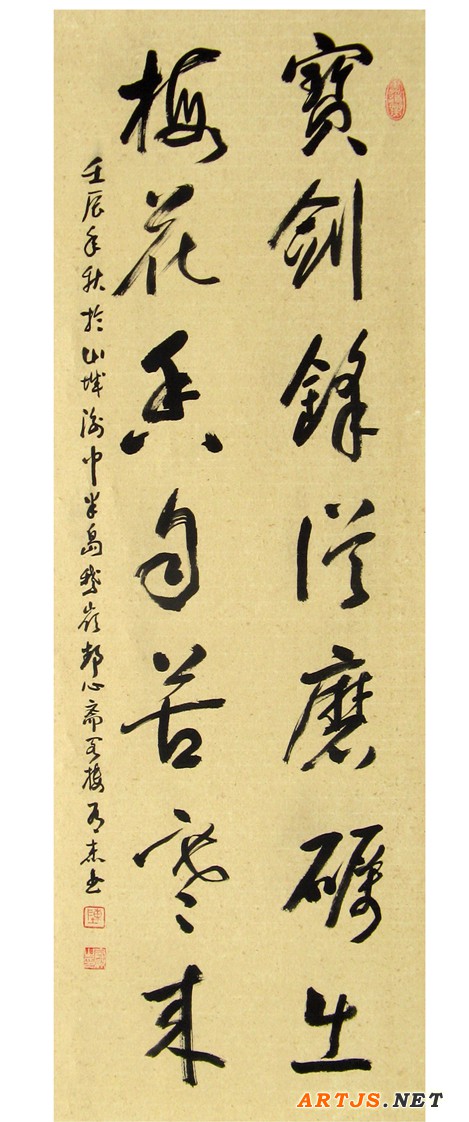 寶劍鋒從磨礪出
梅花香自苦寒來
壬辰年秋於山城渝中半島鵝嶺靜心齋
ARTJS.NET